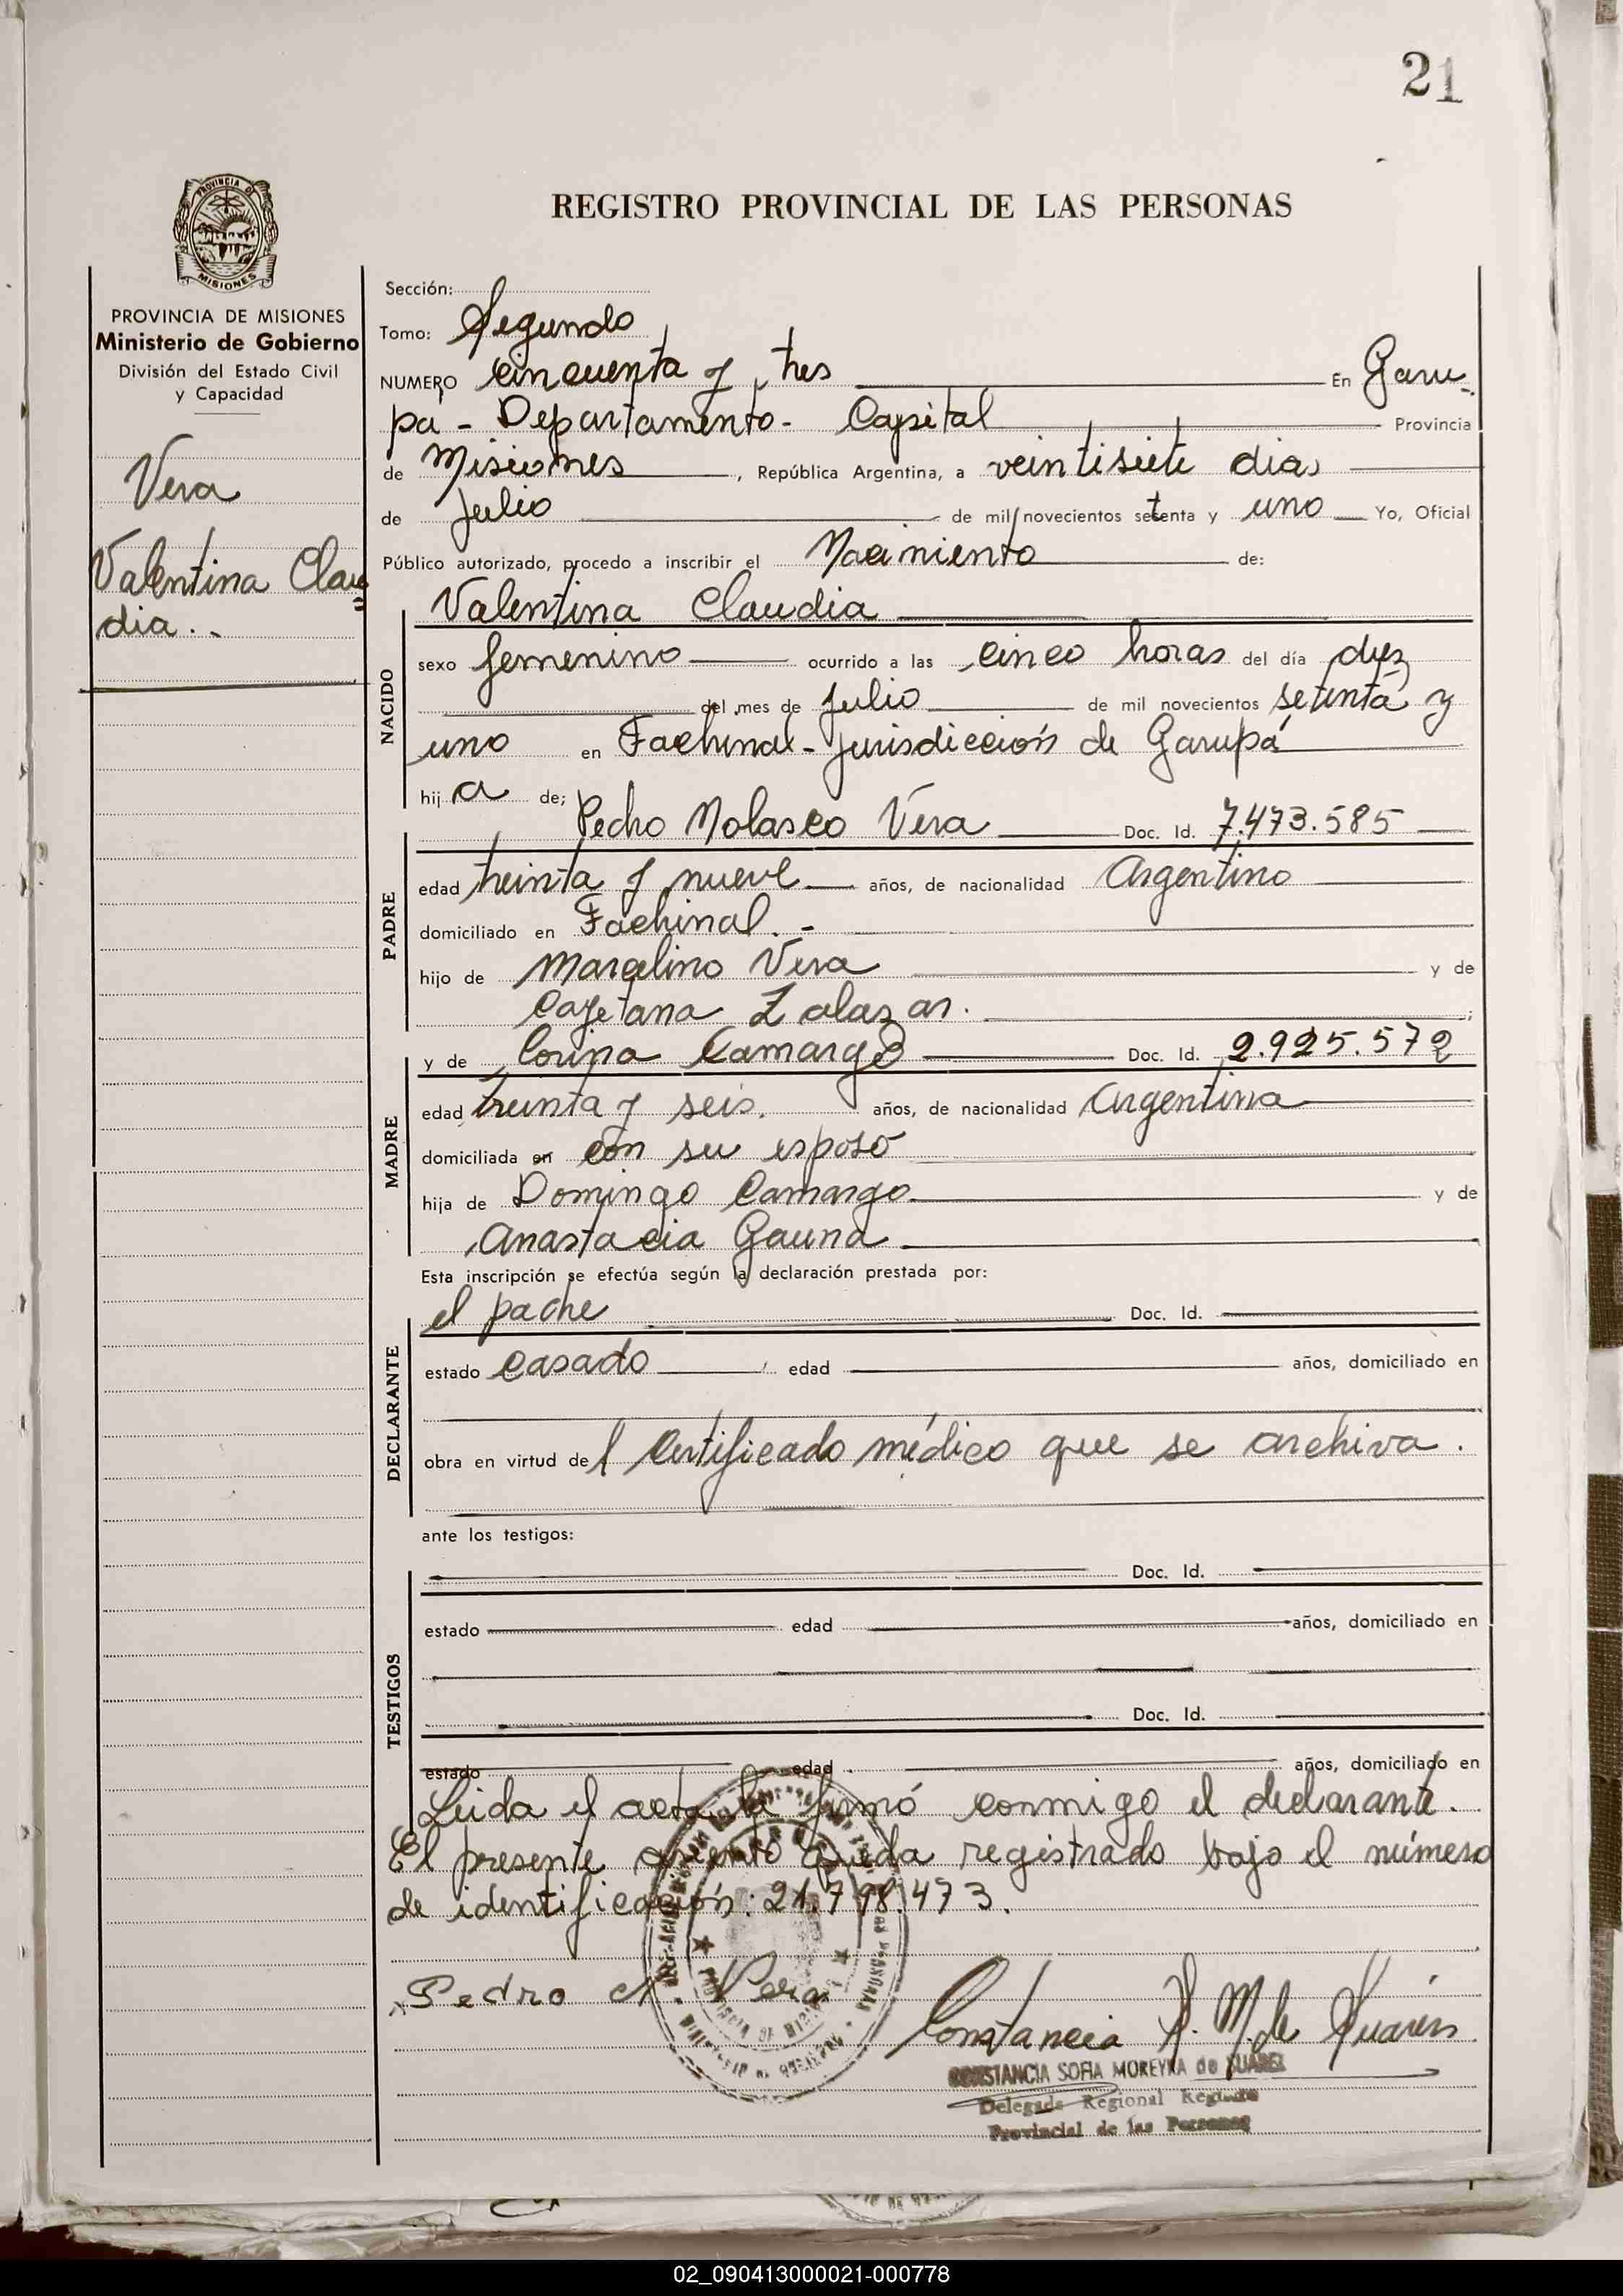 21
REGISTRO PROVINCIAL DE LAS PERSONAS
PROVINCIA DE MISIONES
Ministerio de Gobierno
División del Estado Civil
y Capacidad
Vera
Valentina Clau=
dia..
Sección:
Tomo: Segundo
NUMERO cincuenta y tres En Garu-
pa - Departamento - Capital Provincia
de Misiones, República Argentina, a veintisiete dias
de Julio de mil novecientos setenta y uno Yo, Oficial
Público autorizado, procedo a inscribir el Nacimiento de:
NACIDO
Valentina Claudia
sexo femenino ocurrido a las cinco horas del día diez
del mes de Julio de mil novecientos setenta y
uno en Fachinal - Jurisdicción de Garupá
hija de;
PADRE
Pedro Nolasco Vera Doc. Id. 7.473.585
edad treinta y nueve años, de nacionalidad Argentino
domiciliado en Fachinal.-
hijo de Marcelino Vera y de
Cayetana Zalazar.
MADRE
y de Corina Camargo Doc. Id. 2.925.572
edad treinta y seis. años, de nacionalidad Argentina
domiciliada en con su esposo
hija de Domingo Camargo y de
Anastacia Gauna
Esta inscripción se efectúa según la declaración prestada por:
DECLARANTE
el padre Doc. Id.
estado casado edad años, domiciliado en
obra en virtud del Certificado médico que se archiva.
ante los testigos:
TESTIGOS
Doc. Id.
estado edad años, domiciliado en
Doc. Id.
estado edad años, domiciliado en
Leida el acta la firmó conmigo el declarante.
El presente asiento queda registrado bajo el número
de identificación: 21.798.473.
Pedro N. Vera
Constancia S. M. de Suárez
CONSTANCIA SOFIA MOREYRA de SUAREZ
Delegada Regional Registro
Provincial de las Personas
02_090413000021-000778